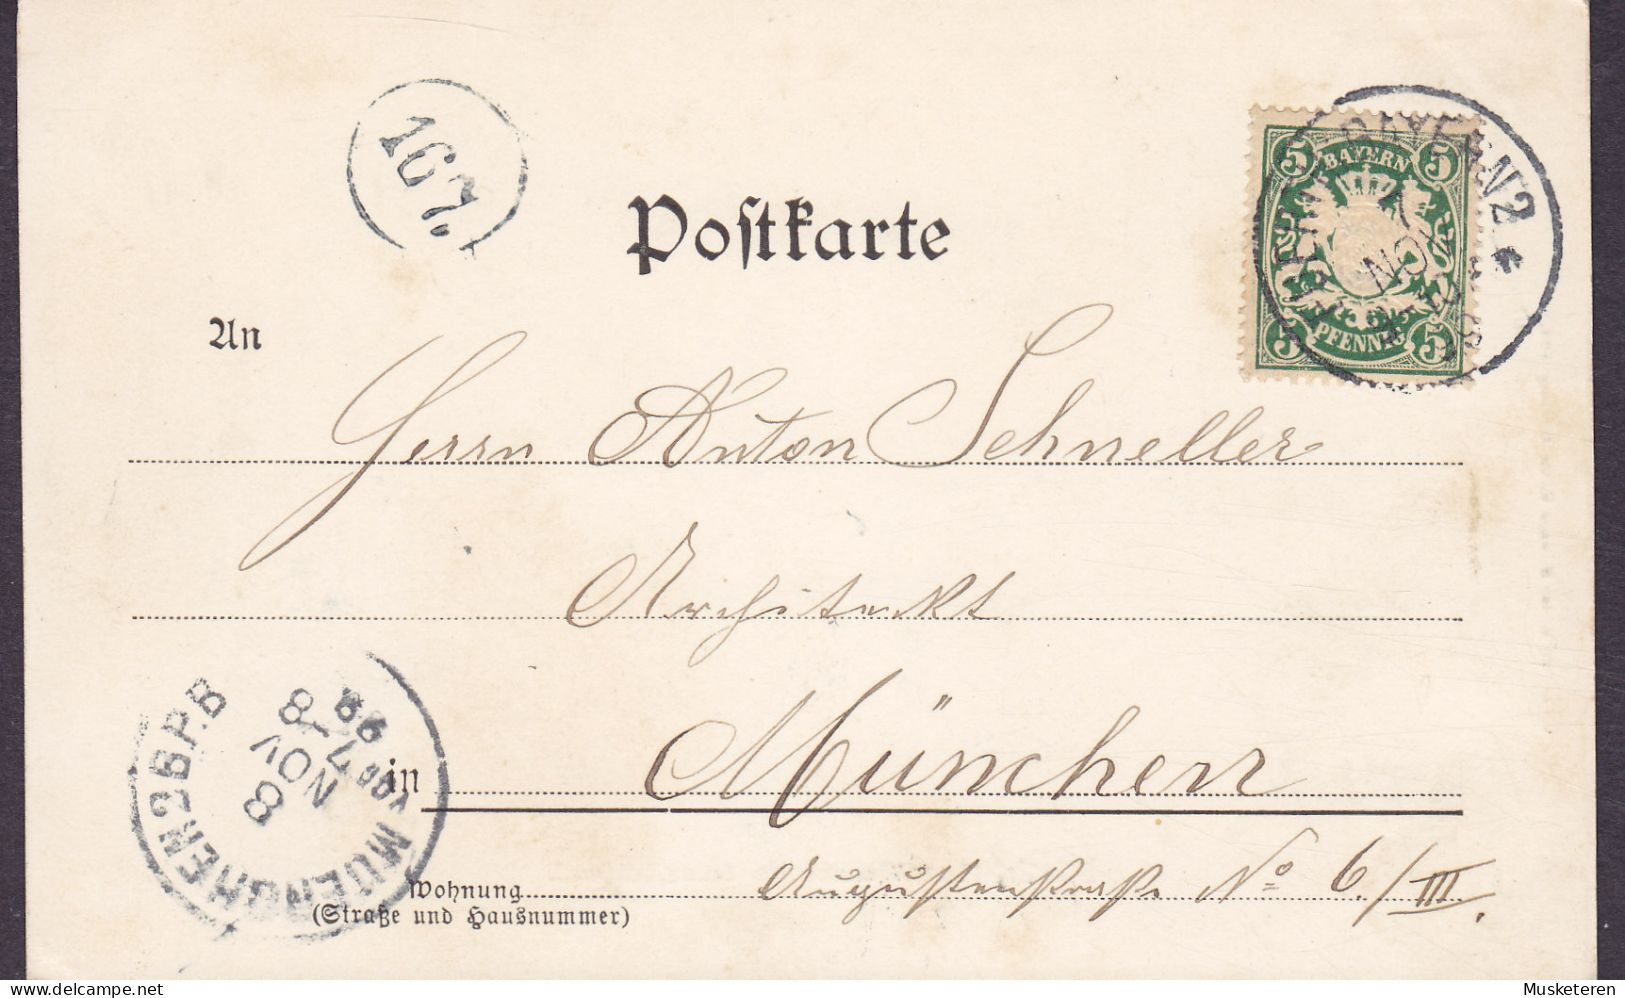 167.
Postkarte
BAYERN 2
5 BAYERN 5
7 NOV
5 PFENNIG 5
An
Herrn Anton Schneller
Architekt
in München
Wohnung Augustenstraße No 6/III.
(Straße und Hausnummer)
MUENCHEN 25 P.B
8 NOV
7-8
VOR
99
www.delcampe.net
Musketeren